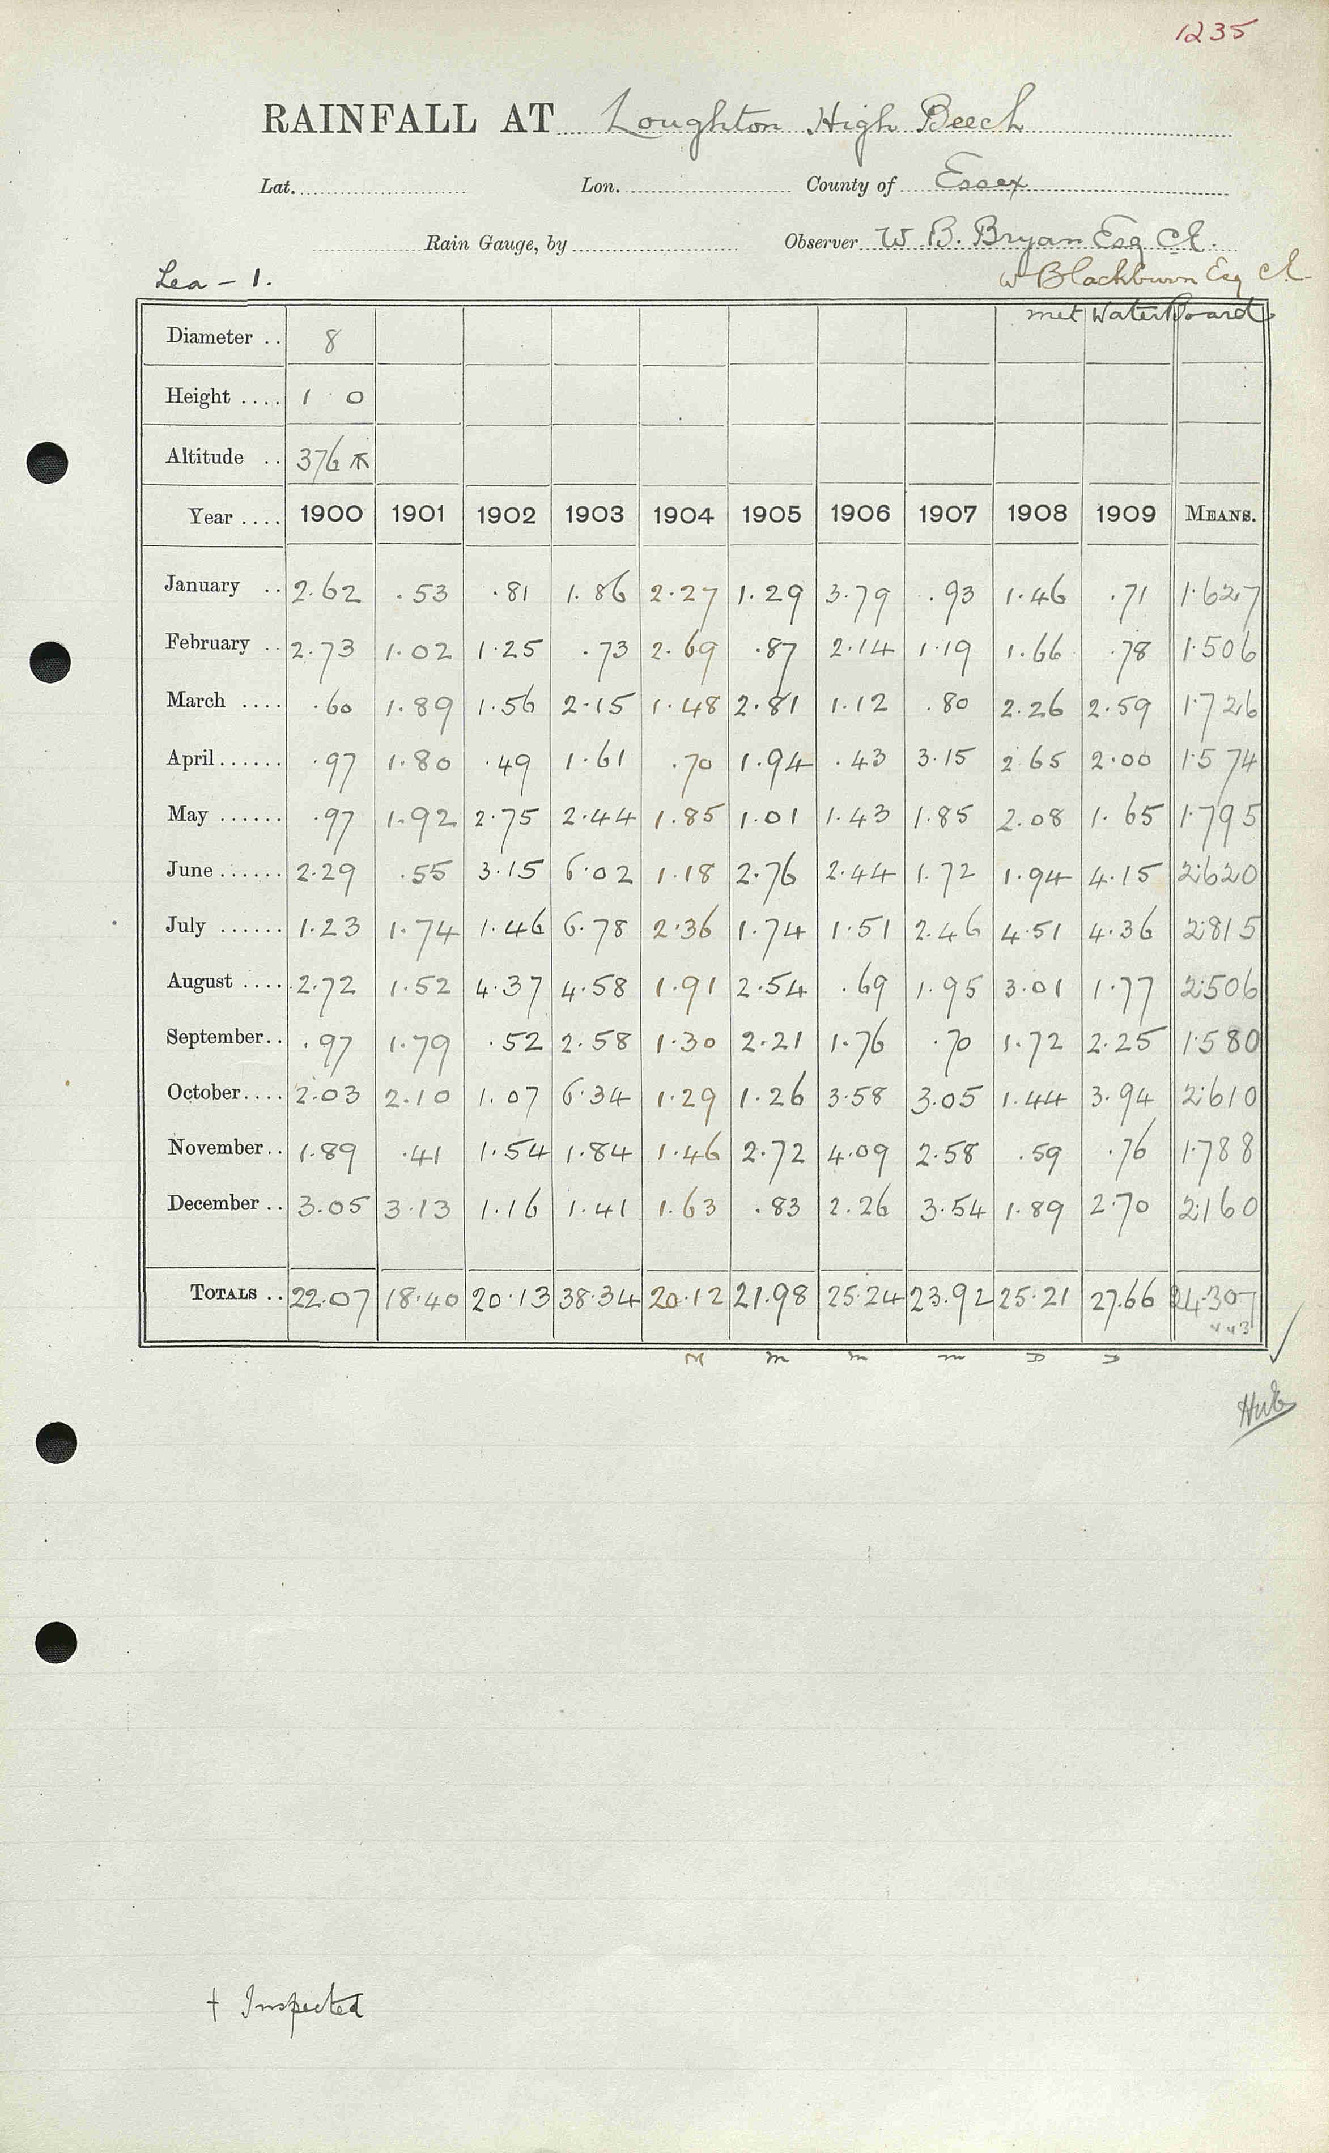 1235
RAINFALL AT Loughton High Beech
Lat. Lon. County of Essex
Rain Gauge, by Observer W. B. Bryan Esq CE.
Lea - 1. W Blackburn Esq CE
Met Water Board
Diameter .. 8
Height .... 1 0
Altitude .. 376
Year .... 1900 1901 1902 1903 1904 1905 1906 1907 1908 1909 MEANS.
January .. 2.62 .53 .81 1.86 2.27 1.29 3.79 .93 1.46 .71 1.627
February .. 2.73 1.02 1.25 .73 2.69 .87 2.14 1.19 1.66 .78 1.506
March .... .60 1.89 1.56 2.15 1.48 2.81 1.12 .80 2.26 2.59 1.726
April ...... .97 1.80 .49 1.61 .70 1.94 .43 3.15 2.65 2.00 1.574
May ...... .97 1.92 2.75 2.44 1.85 1.01 1.43 1.85 2.08 1.65 1.795
June ...... 2.29 .55 3.15 6.02 1.18 2.76 2.44 1.72 1.94 4.15 2.620
July ...... 1.23 1.74 1.46 6.78 2.36 1.74 1.51 2.46 4.51 4.36 2.815
August .... 2.72 1.52 4.37 4.58 1.91 2.54 .69 1.95 3.01 1.77 2.506
September.. .97 1.79 .52 2.58 1.30 2.21 1.76 .70 1.72 2.25 1.580
October.... 2.03 2.10 1.07 6.34 1.29 1.26 3.58 3.05 1.44 3.94 2.610
November.. 1.89 .41 1.54 1.84 1.46 2.72 4.09 2.58 .59 .76 1.788
December .. 3.05 3.13 1.16 1.41 1.63 .83 2.26 3.54 1.89 2.70 2.160
TOTALS .. 22.07 18.40 20.13 38.34 20.12 21.98 25.24 23.92 25.21 27.66 24.307
M m m m D D
† Inspected